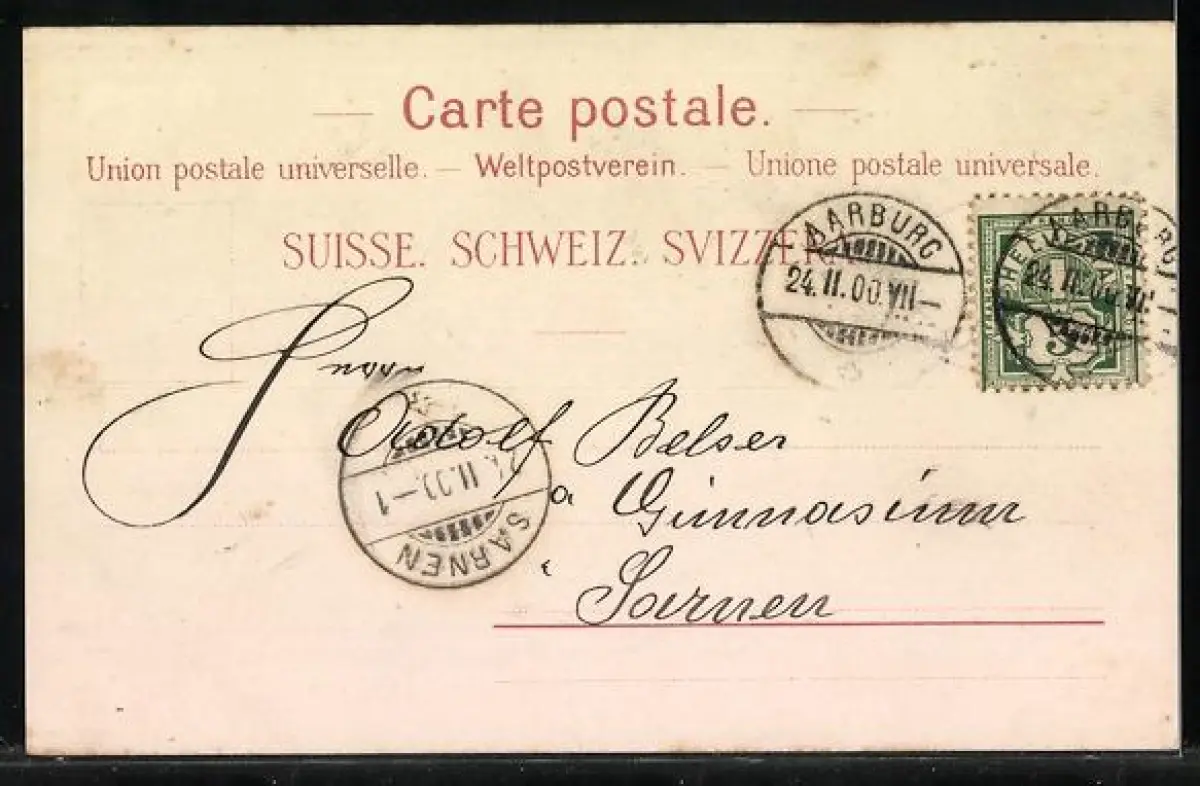 Carte postale.
Union postale universelle. — Weltpostverein. — Unione postale universale.
SUISSE. SCHWEIZ. SVIZZERA
AARBURG
24.II.00.VII—
AARBURG
24.II.00.VII
HELVETIA
5
Herrn
Adolf Belser
a Gimnasium
Sarnen
II.00.–1
SARNEN